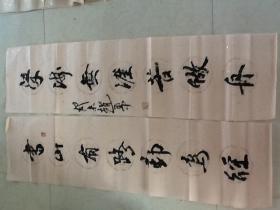 書山有路勤為徑
學海無涯苦做舟